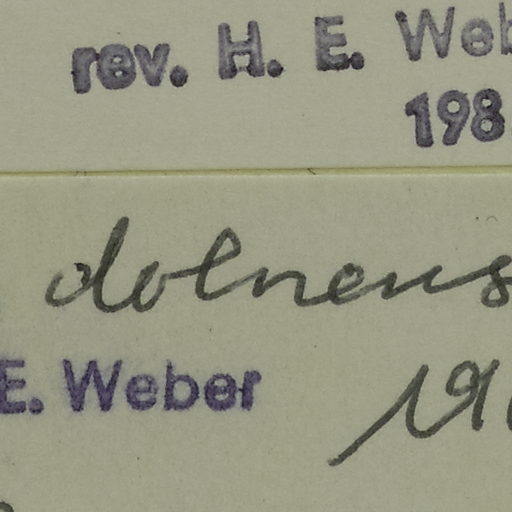 rev. H. E. Web
198
dolneus
E. Weber
191